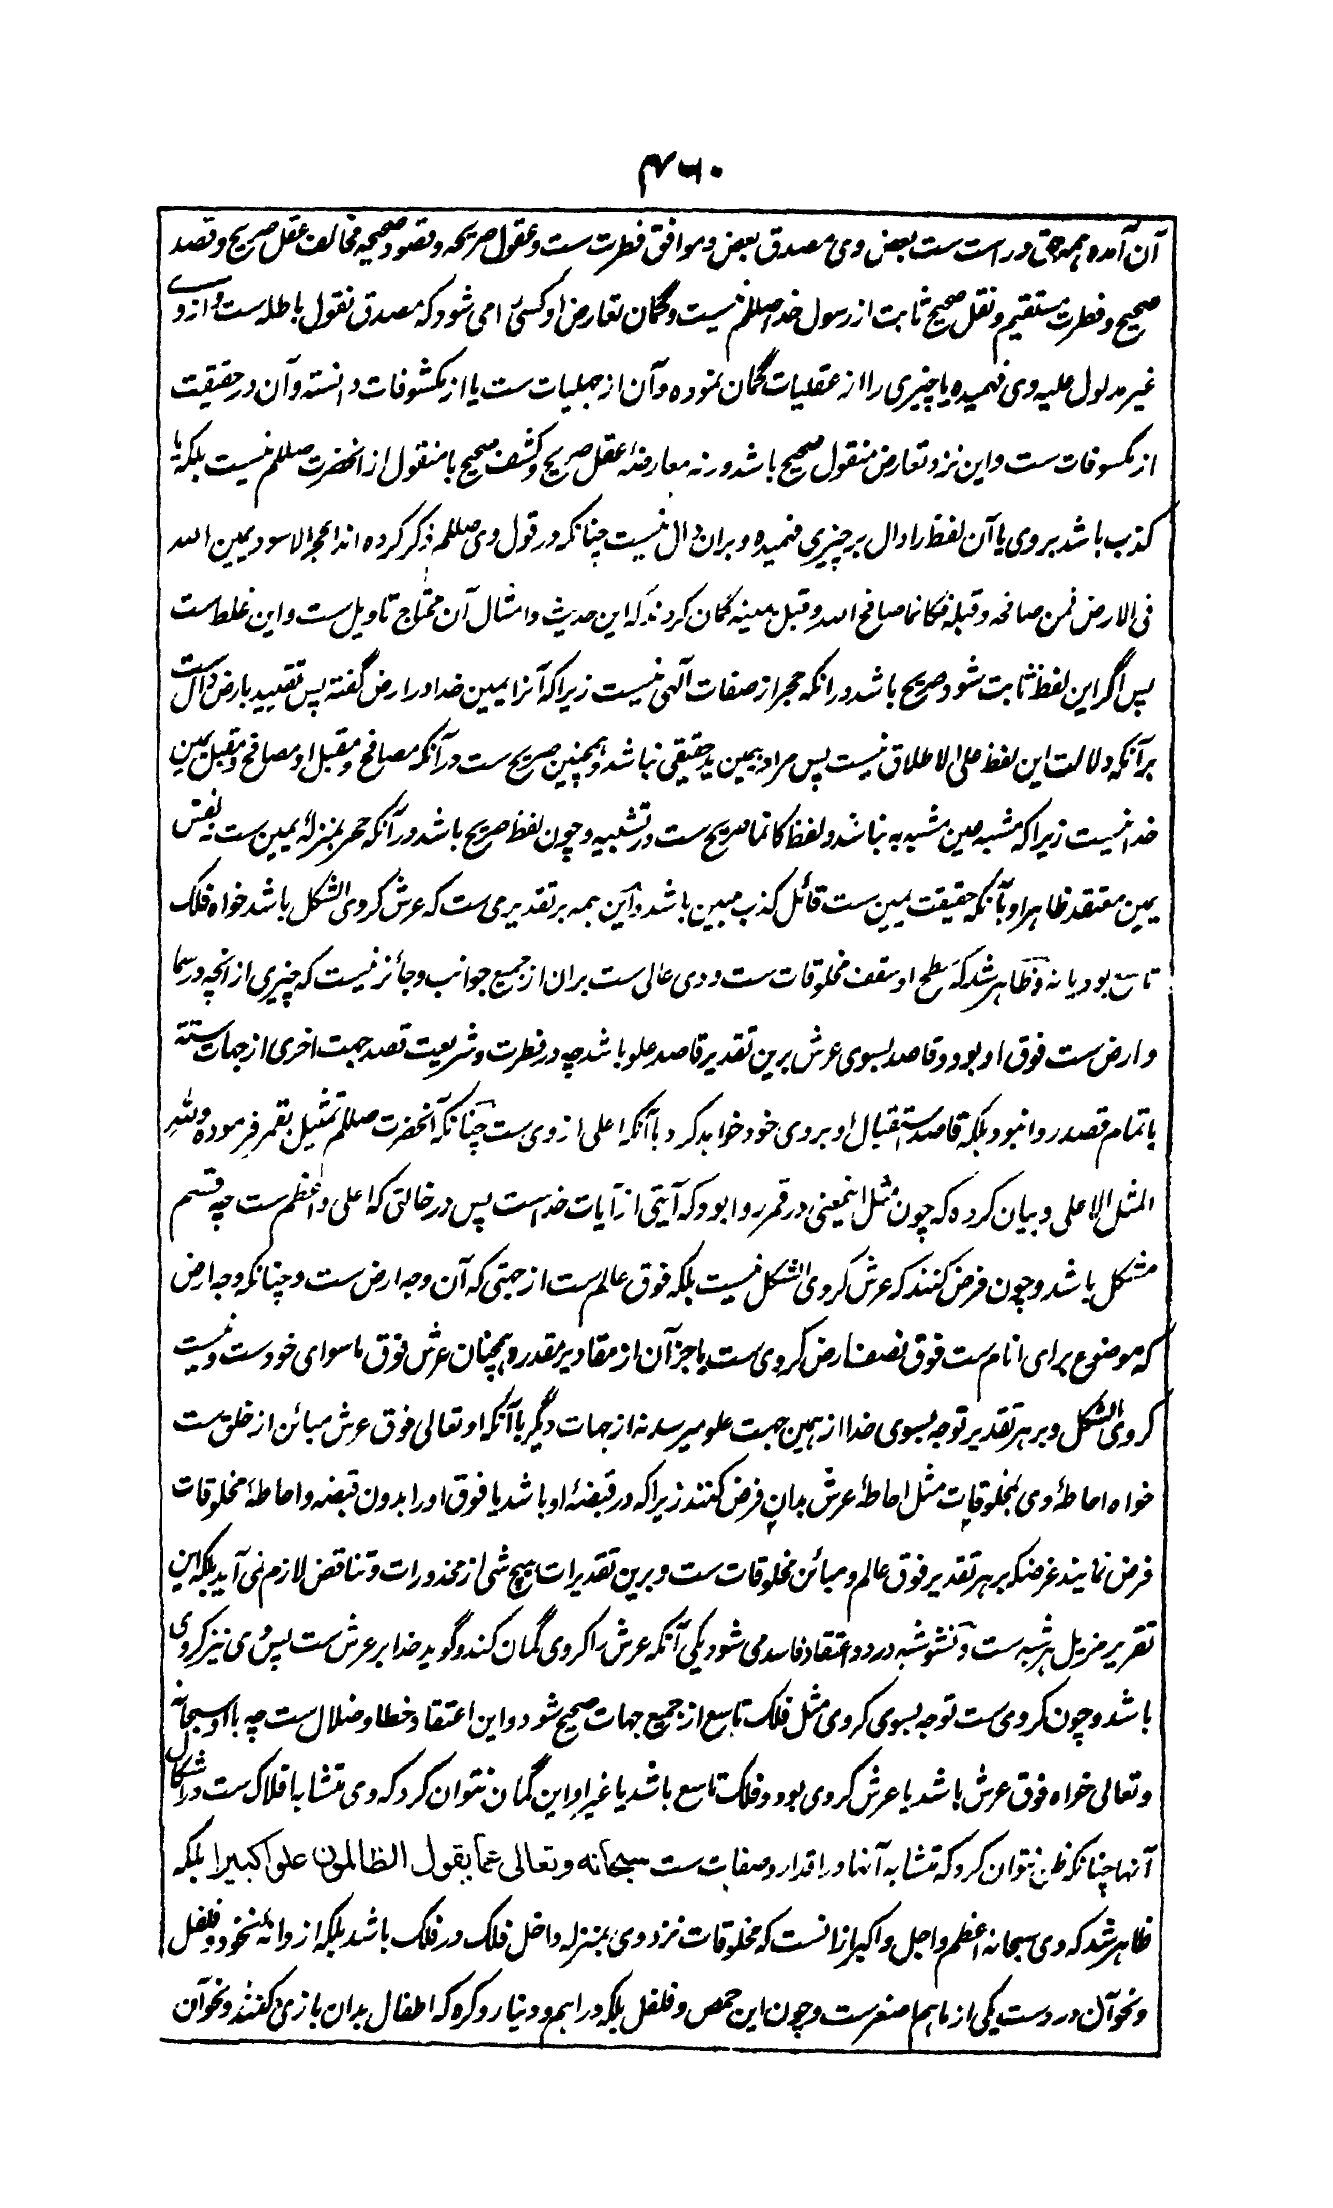 ۴۶۰
آن آمده همه حق و راست ست بعض وی مصدق بعض و موافق فطرت ست و عقول صریحه و قصود صحیحه مخالف عقل صریح و قصد
صحیح و فطرت مستقیم و نقل صحیح ثابت از رسول خدا صللم نیست و گمان تعارض او کسی را می شود که مصدق نقول باطله ست و از وی
غیر مدلول علیه وی فهمیده یا چیزی را از عقلیات گمان نموده و آن از جهلیات ست یا از مکشوفات دانسته و آن در حقیقت
از مکسوفات ست و این نزد تعارض منقول صحیح باشد ورنه معارضهٔ عقل صریح و کشف صحیح با منقول از انحضرت صللم نیست بلکه یا
کذب باشد بروی یا آن لفظ را دال بر چیزی فهمیده و بران دال نیست چنانکه در قول وی صللم ذکر کرده اند الحجر الاسود یمین الله
فی الارض فمن صافحه و قبله فکانما صافح الله و قبل یمینه گمان کردند که این حدیث و امثال آن محتاج تاویل ست و این غلط است
پس اگر این لفظ ثابت شود صریح باشد در انکه حجر از صفات آلهی نیست زیرا که آنرا یمین خدا در ارض گفته پس تقیید بارض دال ست
بر آنکه دلالت این لفظ علی الاطلاق نیست پس مراد بیمین ید حقیقی نباشد و همچنین صریح ست در آنکه مصافح و مقبل او مصافح و مقبل یمین
خدا نیست زیرا که مشبه عین مشبه به نباشد و لفظ کانما صریح ست در تشبیه و چون لفظ صریح باشد در آنکه حجر بمنزلهٔ یمین ست نه نفس
یمین معتقد ظاهر او بآنکه حقیقت یمین ست قائل کذب مبین باشد و این همه بر تقدیری ست که عرش کروی الشکل باشد خواه فلک
تاسع بود یا نه و ظاهر شد که سطح او سقف مخلوقات ست و وی عالی ست بران از جمیع جوانب و جائز نیست که چیزی از انچه در سما
و ارض ست فوق او بود و قاصد بسوی عرش برین تقدیر قاصد علو باشد چه در فطرت و شریعت قصد جهت اخری از جهات ستته
با تمام قصد روا نبود بلکه قاصد استقبال او بروی خود خواهد کرد با آنکه اعلی از وی ست چنانکه آنحضرت صللم تمثیل بقمر فرموده و لله
المثل الاعلی و بیان کرده که چون مثل اینمعنی در قمر روا بود که آیتی از آیات خداست پس در خالقی که اعلی و اعظم ست چه قسم
مشکل باشد و چون فرض کنند که عرش کروی الشکل نیست بلکه فوق عالم ست از جهتی که آن وجه ارض ست و چنانکه وجه ارض
که موضوع برای انام ست فوق نصف ارض کروی ست یا جز آن از مقادیر مقدره همچنان عرش فوق ماسوای خودست و نیست
کروی الشکل و بر هر تقدیر توجه بسوی خدا از همین جهت علو میرسد نه از جهات دیگر با آنکه او تعالی فوق عرش مبائن از خلق ست
خواه احاطهٔ وی بمخلوقات مثل احاطهٔ عرش بدان فرض کنند زیرا که در قبضهٔ او باشد یا فوق او را بدون قبضه و احاطهٔ مخلوقات
فرض نمایند غرضکه بر هر تقدیر فوق عالم و مبائن مخلوقات ست و برین تقدیرات هیچ شی از محذورات و تناقض لازم نمی آید بلکه این
تقریر مزیل هر شبه ست و نشو شبه در دو اعتقاد فاسد می شود یکی آنکه عرش را کروی گمان کند و گوید خدا بر عرش ست پس وی نیز کروی
باشد و چون کروی ست توجه بسوی کروی مثل فلک تاسع از جمیع جهات صحیح شود و این اعتقاد خطا و ضلال ست چه با او سبحانه
و تعالی خواه فوق عرش باشد یا عرش کروی بود و فلک تاسع باشد یا غیر او این گمان نتوان کرد که وی متشابه افلاک ست در اشکال
آنها چنانکه ظن نتوان کرد که متشابه آنها در اقدار و صفات ست سبحانه وتعالی عما یقول الظالمون علوا کبیرا بلکه
ظاهر شد که وی سبحانه اعظم و اجل و اکبر از انست که مخلوقات نزد وی بمنزله داخل فلک در فلک باشد بلکه از دانهٔ نخود و فلفل
و نحو آن در دست یکی از ما هم اصغر ست و چون این حمص و فلفل بلکه دراهم و دنیار و کره که اطفال بدان بازی کنند و نحو آن